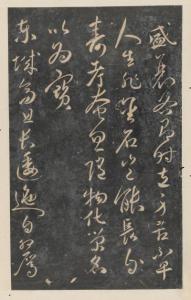 盛衰各有時立身苦不早
人生非金石豈能長
壽考奄忽隨物化榮名
以為寶
東城高且長逶迤自相屬